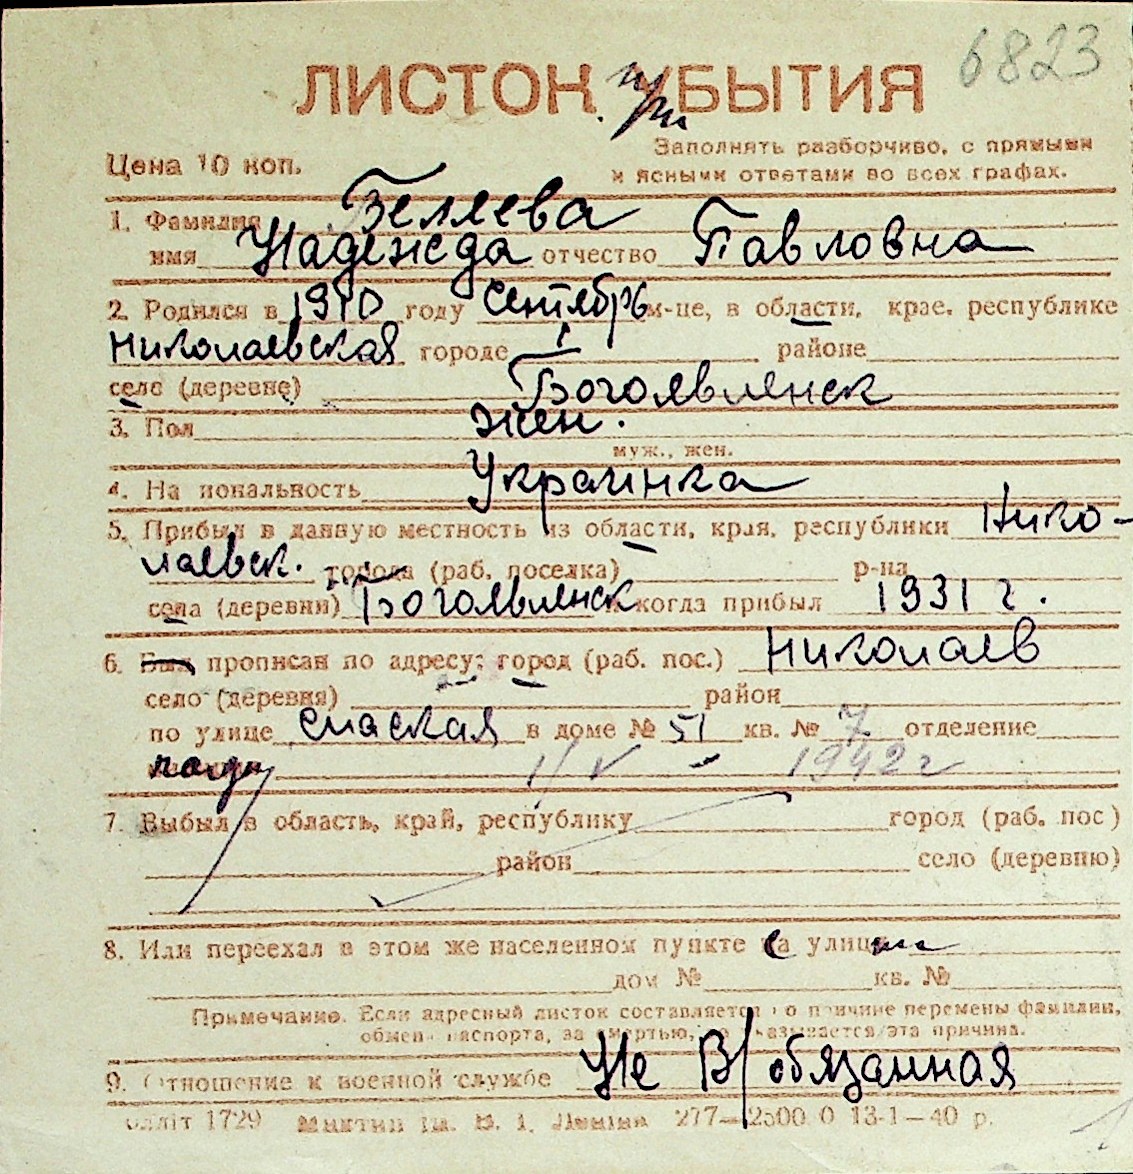 6823
ЛИСТОК прБЫТИЯ
Цена 10 коп.
Заполнять разборчиво, с прямыми
и ясными ответами во всех графах.
1. Фамилия Беляева
имя Надежда отчество Павловна
2. Родился в 1910 году сентябрь м-це, в области, крае, республике
Николаевская городе районе
село (деревне) Богоявленск
3. Пол жен.
муж., жен.
4. Национальность Украинка
5. Прибыл в данную местность из области, края, республики Нико-
лаевск. города (раб. поселка) р-на
села (деревни) Богоявленск и когда прибыл 1931 г.
6. Был прописан по адресу: город (раб. пос.) Николаев
село (деревня) район
по улице спаская в доме № 51 кв. № 7 отделение
1/V - 1942 г
7. Выбыл в область, край, республику город (раб. пос)
район село (деревню)
8. Или переехал в этом же населенном пункте са улицы
дом № кв. №
Примечание. Если адресный листок составляется по причине перемены фамилии,
обмена паспорта, за смертью, то указывается эта причина.
9. Отношение к военной службе Не В/обязанная
1729 277—2500 0 13-1—40 р.